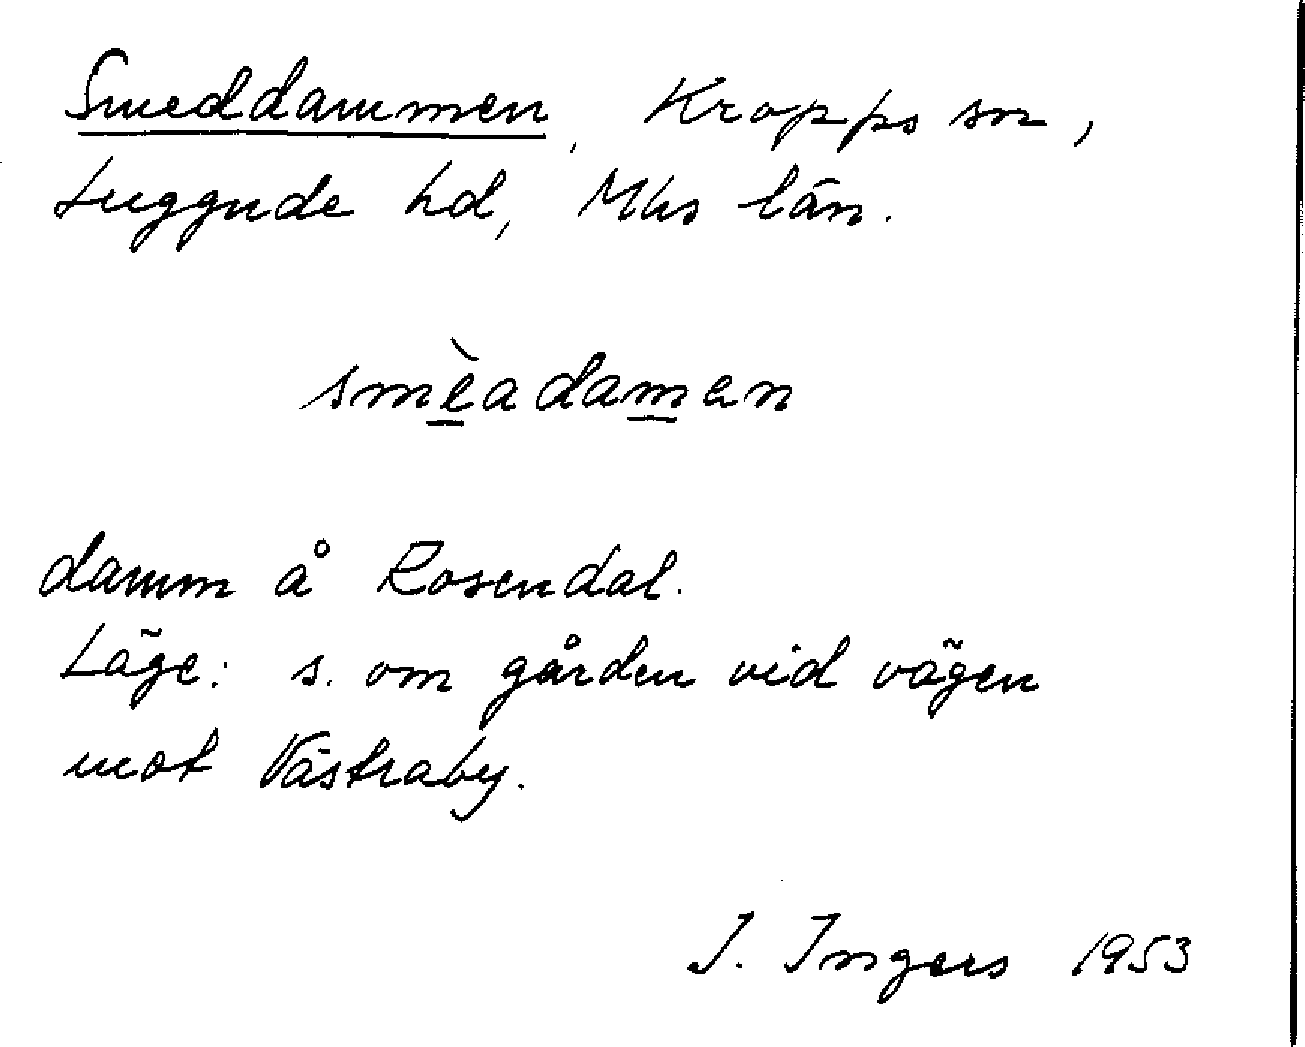 Smeddammen, Kropps sn,
Luggude hd, Mhs län.
smèadamen
damm å Rosendal.
Läge: s. om gården vid vägen
mot Västraby.
I. Ingers 1953